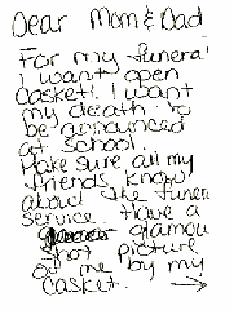 Dear Mom & Dad
For my funeral
I want open
casket. I want
my death to
be announced
at school.
Make sure all my
friends know
about the funeral
service. Have a
glamour
shot picture
of me by my
casket. →